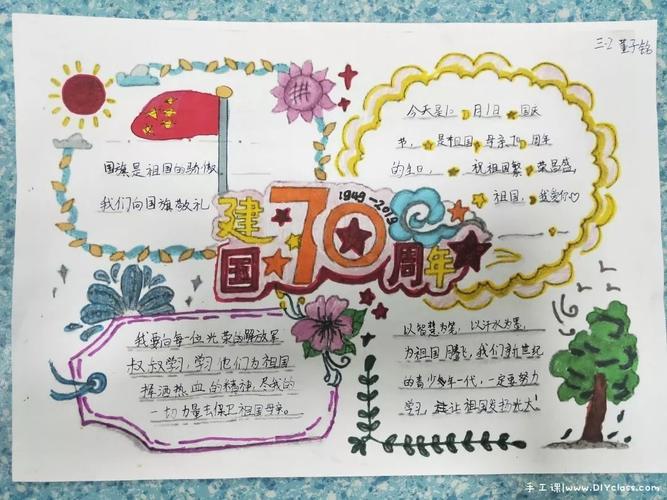 三.2 董子铭
国旗是祖国的骄傲
我们向国旗敬礼
今天是10月1日国庆
节，是祖国母亲70周年
的生日，祝祖国繁荣昌盛,
祖国，我爱你
1949-2019
建
70
国 周年
我要向每一位光荣的解放军
叔叔学习,学习他们为祖国
挥洒热血的精神,尽我的
一切力量去保卫祖国母亲。
以智慧为笔，以汗水为墨,
为祖国腾飞,我们新世纪
的青少年一代,一定要努力
学习，让祖国发扬光大!
手工课|www.DIYclass.com